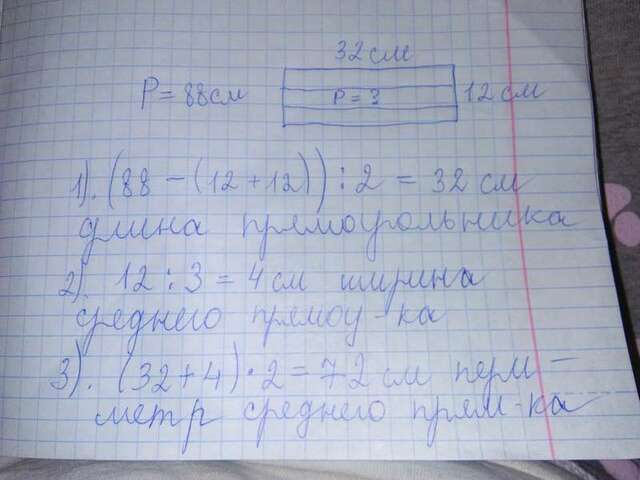 32 см
P = 88 см
P = ?
12 см
1). (88 - (12 + 12)) : 2 = 32 см
длина прямоугольника
2). 12 : 3 = 4 см ширина
среднего прямоу-ка
3). (32 + 4) · 2 = 72 см пери-
метр среднего прям-ка